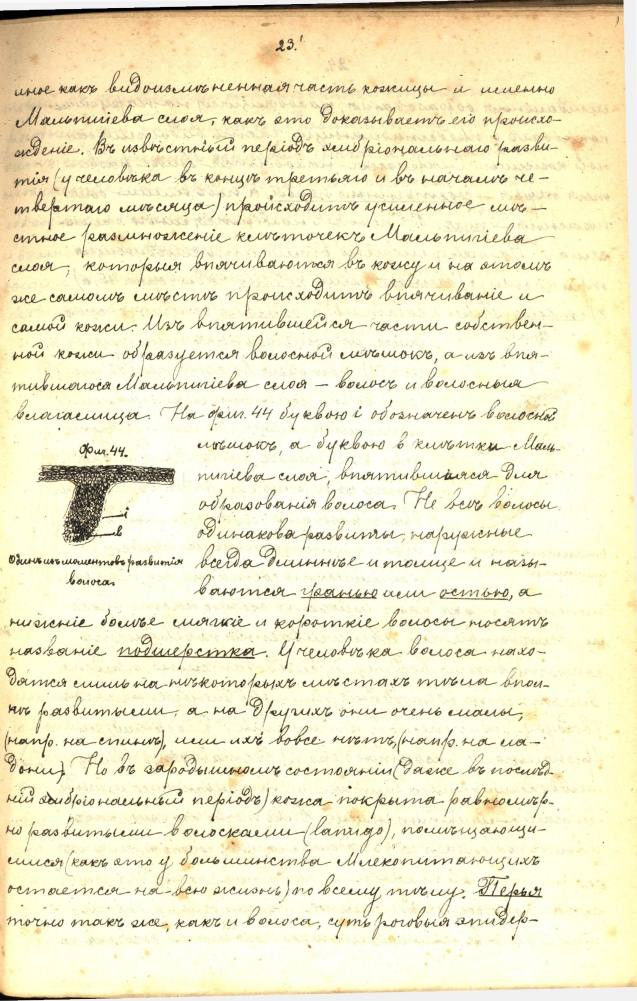 23.
иное какъ видоизмѣненная часть кожицы и именно
Мальпигіева слоя, какъ это доказываетъ его происхо-
жденіе. Въ извѣстный періодъ эмбріональнаго разви-
тія (у человѣка въ концѣ третьяго и въ началѣ че-
твертаго мѣсяца) происходитъ усиленное мѣ-
стное размноженіе клѣточекъ Мальпигіева
слоя, которыя впячиваются въ кожу и на этомъ
же самомъ мѣстѣ происходитъ впячиваніе и
самой кожи. Изъ впятившейся части собствен-
ной кожи образуется волосной мѣшокъ, а изъ впя-
тившагося Мальпигіева слоя – волосъ и волосныя
влагалища. На фиг. 44 буквою i обозначенъ волосной
мѣшокъ, а буквою в клѣтки Маль-
пигіева слоя, впятившіяся для
образованія волоса. Не всѣ волосы
одинаково развиты, наружные
всегда длиннѣе и толще и назы-
ваются гранью или остью, а
Фиг. 44.
i
в
Одинъ изъ моментовъ развитія
волоса.
нижніе болѣе мягкіе и короткіе волосы носятъ
названіе подшерстка. У человѣка волоса нахо-
дятся лишь на нѣкоторыхъ мѣстахъ тѣла впол-
нѣ развитыми, а на другихъ они очень малы,
(напр. на спинѣ), или ихъ вовсе нѣтъ, (напр. на ла-
дони). Но въ зародышномъ состояніи (даже въ послѣд-
ній эмбріональный періодъ) кожа покрыта равномѣр-
но развитыми волосками (lanugo), помѣщающи-
мися (какъ это у большинства Млекопитающихъ
остается на всю жизнь) по всему тѣлу. Перья
точно такъ же, какъ и волоса, суть роговыя эпидер-